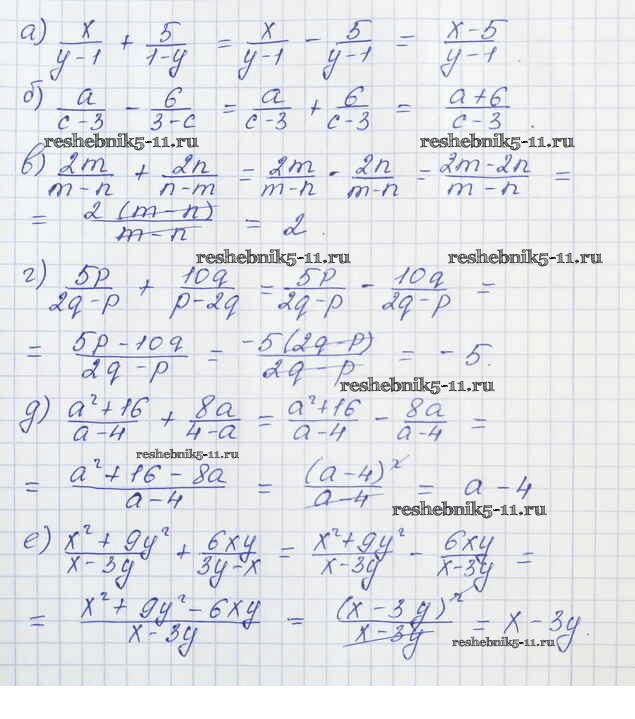 а) x/(y-1) + 5/(1-y) = x/(y-1) - 5/(y-1) = (x-5)/(y-1).
б) a/(c-3) - 6/(3-c) = a/(c-3) + 6/(c-3) = (a+6)/(c-3).
reshebnik5-11.ru reshebnik5-11.ru
в) 2m/(m-n) + 2n/(n-m) = 2m/(m-n) - 2n/(m-n) = (2m-2n)/(m-n) =
= 2(m-n)/(m-n) = 2.
reshebnik5-11.ru reshebnik5-11.ru
г) 5p/(2q-p) + 10q/(p-2q) = 5p/(2q-p) - 10q/(2q-p) =
= (5p-10q)/(2q-p) = -5(2q-p)/(2q-p) = -5.
reshebnik5-11.ru
д) (a²+16)/(a-4) + 8a/(4-a) = (a²+16)/(a-4) - 8a/(a-4) =
reshebnik5-11.ru
= (a²+16-8a)/(a-4) = (a-4)²/(a-4) = a-4
reshebnik5-11.ru
е) (x²+9y²)/(x-3y) + 6xy/(3y-x) = (x²+9y²)/(x-3y) - 6xy/(x-3y) =
= (x²+9y²-6xy)/(x-3y) = (x-3y)²/(x-3y) = x-3y.
reshebnik5-11.ru